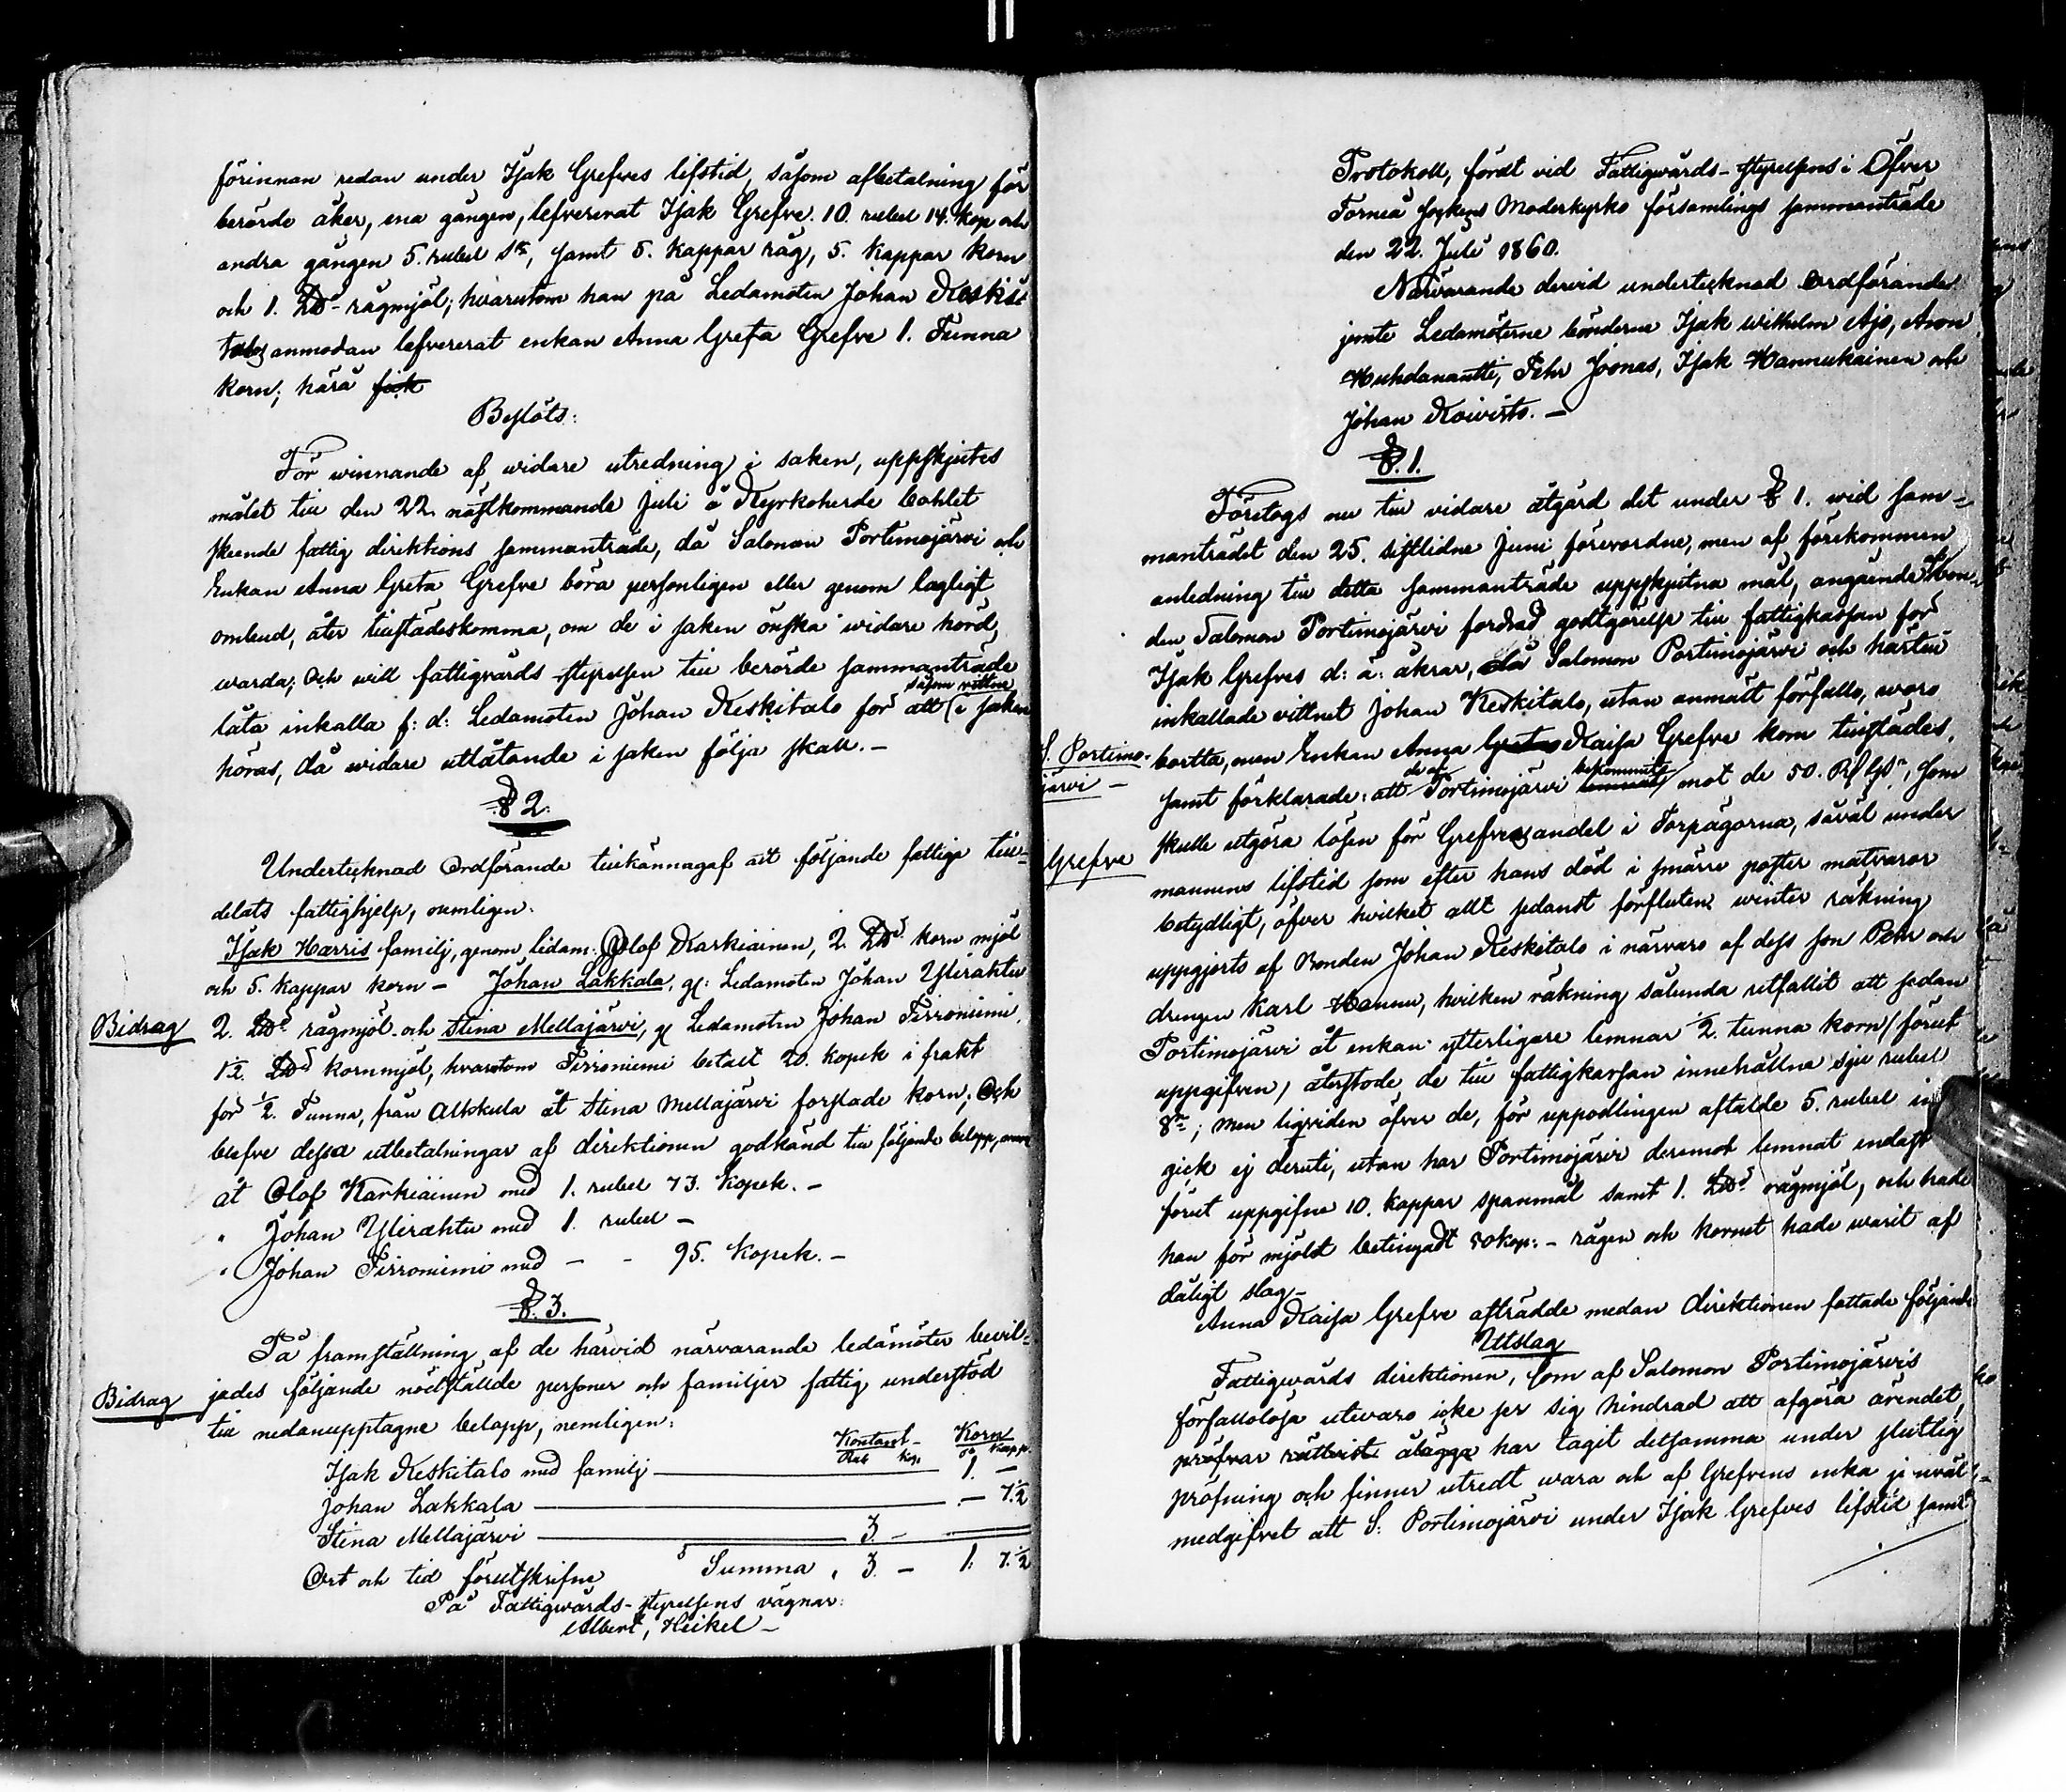 förinnan redan under Isak Grefves lifstid, såsom afbetalning för
berörde åker, ena gången, lefvererat Isak Grefve 10. rubel 14. kop och
andra gången 5. rubel Sr, samt 5. kappar råg, 5. kappar korn
och 1. LW rågmjöl; hvarutom han på Ledamoten Johan Keski-
talos anmodan lefvererat enkan Anna Greta Grefve 1. Tunna
korn; härå
Beslöts:
För winnande af widare utredning i saken, uppskjutes
målet till den 22. nästkommande Juli å Kyrkoherde bohlet
skeende fattig direktions sammanträde, då Salomon Portimojärvi och
Enkan Anna Greta Grefve böra personligen eller genom lagligt
ombud, åter tillstädeskomma, om de i saken önska widare hörd
warda; Och will fattigvårds styrelsen till berörde sammanträde
såsom vittne
låta inkalla f: d: Ledamoten Johan Keskitalo för att i saken
höras, då widare utlåtande i saken följa skall. –
§ 2.
Undertecknad Ordförande tillkännagaf att följande fattige till-
delats fattighjelp, nemligen:
Isak Harris familj, genom Ledam: Olof Karkiainen, 2. LW korn mjöl
och 5. kappar korn – Johan Lakkala, gm: Ledamoten Johan Yliraktu
Bidrag
2. LW rågmjöl och Stina Mellajärvi, gm Ledamoten Johan Tirroniemi,
1½ LW kornmjöl, hvarutom Tirroniemi betalt 20. kopek i frakt
för ½. Tunna, från Alkkula åt Stina Mellajärvi forslade korn; Och
blefve dessa utbetalningar af direktionen godkänd till följande belopp,
åt Olof Karkiainen med 1. rubel 73. kopek. –
" Johan Yliraktu med 1. rubel –
" Johan Tirroniemi med – – 95. kopek. –
§. 3.
På framställning af de härvid närvarande ledamöter bevil-
Bidrag
jades följande nödstälde personer och familjer fattig understöd
till nedanupptagne belopp, nemligen:
Kontant – Korn
Rub kop. Ta Kapp.
Isak Keskitalo med familj — 1. –
Johan Lakkala — – 7.½
Stina Mellajärvi — 3. –
Ort och tid förutskrifne Summa, 3. – 1. 7.½
På Fattigwårds-styrelsens vägnar:
Albert Heikel –
Protokoll, fördt vid Fattigwårds-styrelsens i Öfver
Torneå sockens Moderkyrko församlings sammanträde
den 22. Juli 1860.
Närvarande dervid undertecknad Ordförande
jemte Ledamöterne bönderne Isak Wilhelm Ajo, Aron
Huhdanantti, Pehr Joonas, Isak Hannukainen och
Johan Koivisto. –
§. 1.
Företogs nu till vidare åtgärd det under § 1. wid sam-
manträdet den 25. sistlidne Juni förevordne, men af förekommen
anledning till detta sammanträde uppskjutna mål, angående Bon-
den Salomon Portimojärvi fordrad godtgörelse till fattigkassan för
Isak Grefves d: ä: åkrar, då Salomon Portimojärvi och härtill
inkallade vittnet Johan Keskitalo, utan anmält förfallo, woro
S. Portimo-
järvi –
bortta, men Enkan Anna Greta Kaisa Grefve kom tillstädes,
de af bekommit
samt förklarade: att Portimojärvi mot de 50. Rf Gs, som
skulle utgöra lösen för Grefves andel i Torpägorna, såväl under
Grefve
mannens lifstid som efter hans död i smärre poster matvaror
betydligt, öfver hvilket allt sedan förfluten winter räkning
uppgjorts af Bonden Johan Keskitalo i närvaro af dess son Pehr och
drengen Karl Hannu, hvilken räkning sålunda utfallit att sedan
Portimojärvi åt enkan ytterligare lemnar ½. tunna korn / förut
uppgifven / återstode de till fattigkassan innehållna sju rubel
Sr; men liqviden öfver de, för uppodlingen aftalde 5. rubel in
gick ej deruti, utan har Portimojärvi deremot lemnat endast
förut uppgifne 10. kappar spanmål samt 1. LW rågmjöl, och hade
han för mjölet betingadt 50 kop: – rågen och kornet hade warit af
dåligt slag –
Anna Kaisa Grefve afträdde medan direktionen fattade följande
Utslag
Fattigwårds direktionen, som af Salomon Portimojärvis
förfallolösa utewaro icke ser sig hindrad att afgöra ärendet,
pröfvar rättvist ålägga har tagit detsamma under slutlig
pröfning och finner utredt wara och af Grefvens enka jemväl
medgifvet att S: Portimojärvi under Isak Grefves lifstid samt